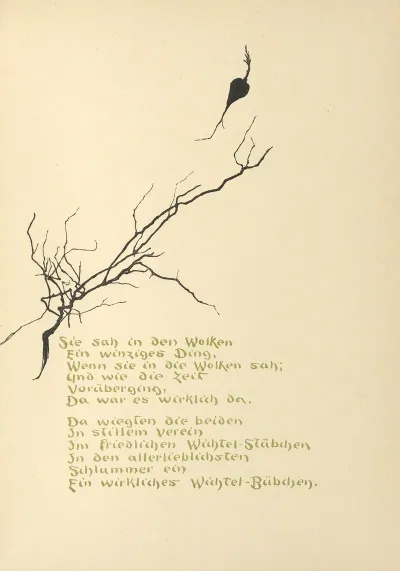 Sie sah in den Wolken
Ein winziges Ding,
Wenn sie in die Wolken sah;
Und wie die Zeit
Vorüberging,
Da war es wirklich da.
Da wiegten die beiden
In stillem Verein
Im friedlichen Wichtel-Stübchen
In den allerlieblichsten
Schlummer ein
Ein wirkliches Wichtel-Bübchen.